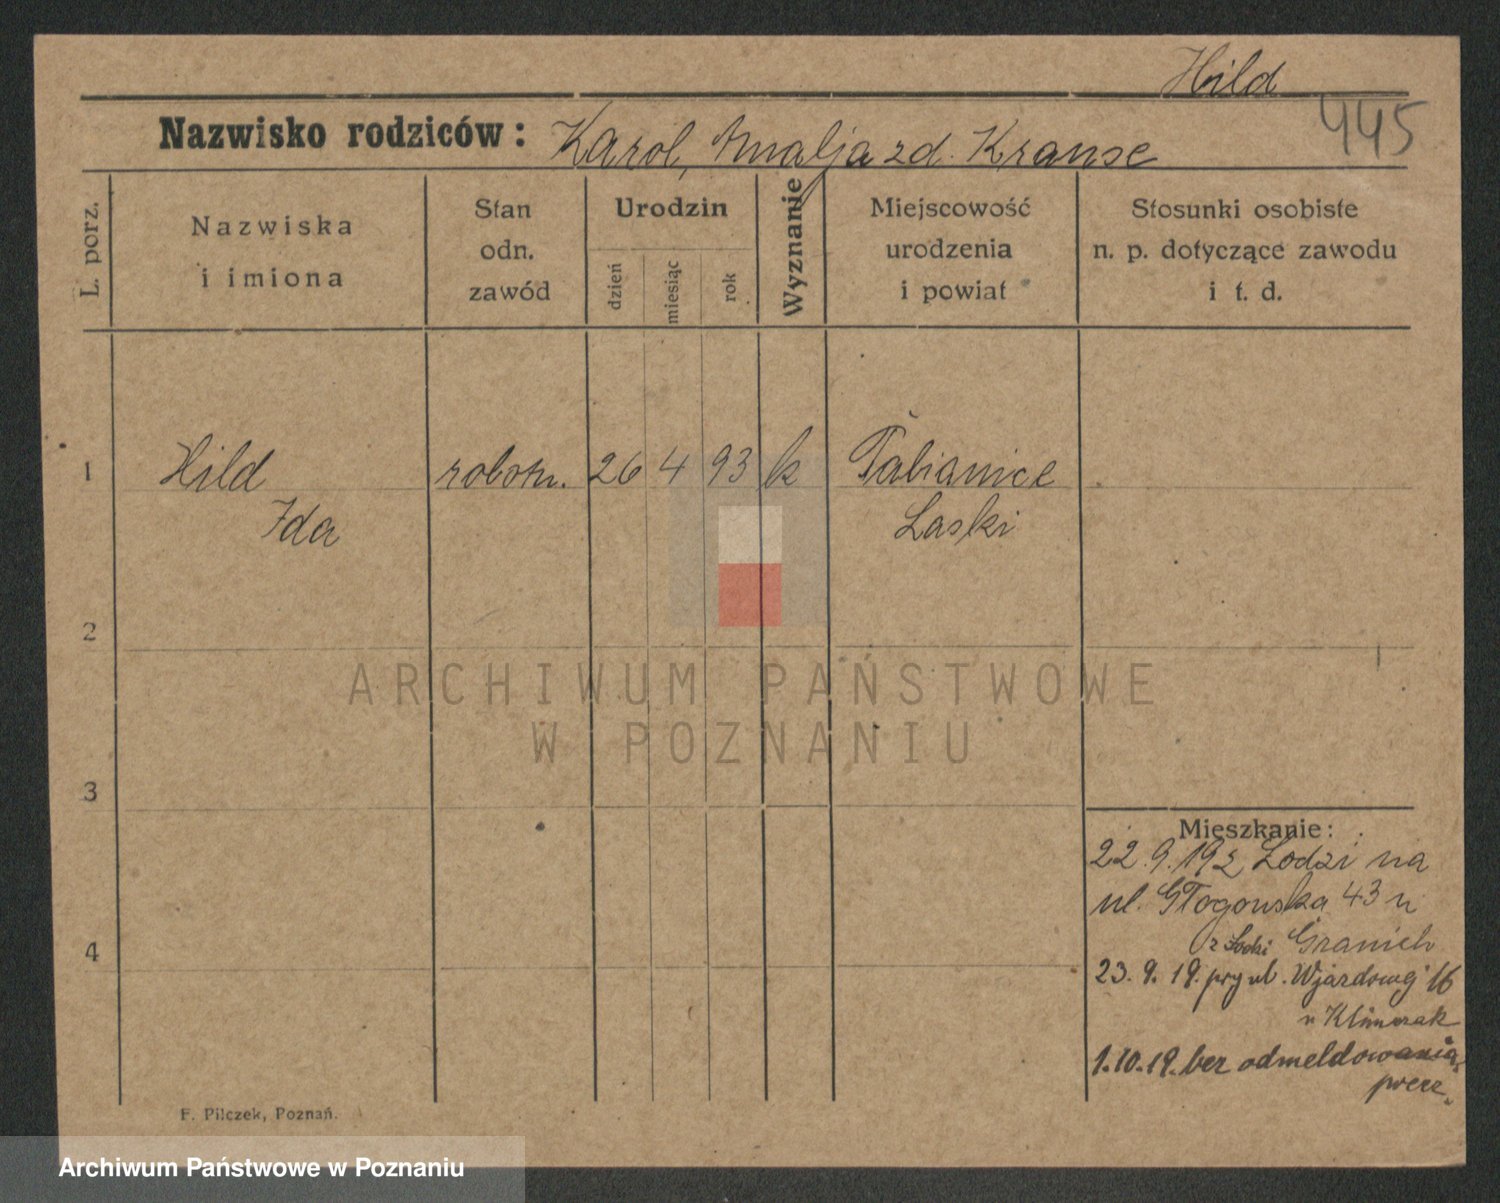 Hild
445
Nazwisko rodziców: Karol, Amalja zd. Krause
L. porz.
Nazwiska i imiona
Stan odn. zawód
Urodzin
dzień
miesiąc
rok
Wyznanie
Miejscowość urodzenia i powiat
Stosunki osobiste n. p. dotyczące zawodu i t. d.
1 Hild robotn. 26 4 93 k Pabianice
Ida Laski
2
3
4
Mieszkanie:
22.9.19 z Łodzi na
ul. Głogowska 43 u
z Łodzi Granich
23.9.19. przy ul. Wjazdowej 16
u Klimczak
1.10.19. bez odmeldowania
F. Pilczek, Poznań.
ARCHIWUM PAŃSTWOWE
W POZNANIU
Archiwum Państwowe w Poznaniu